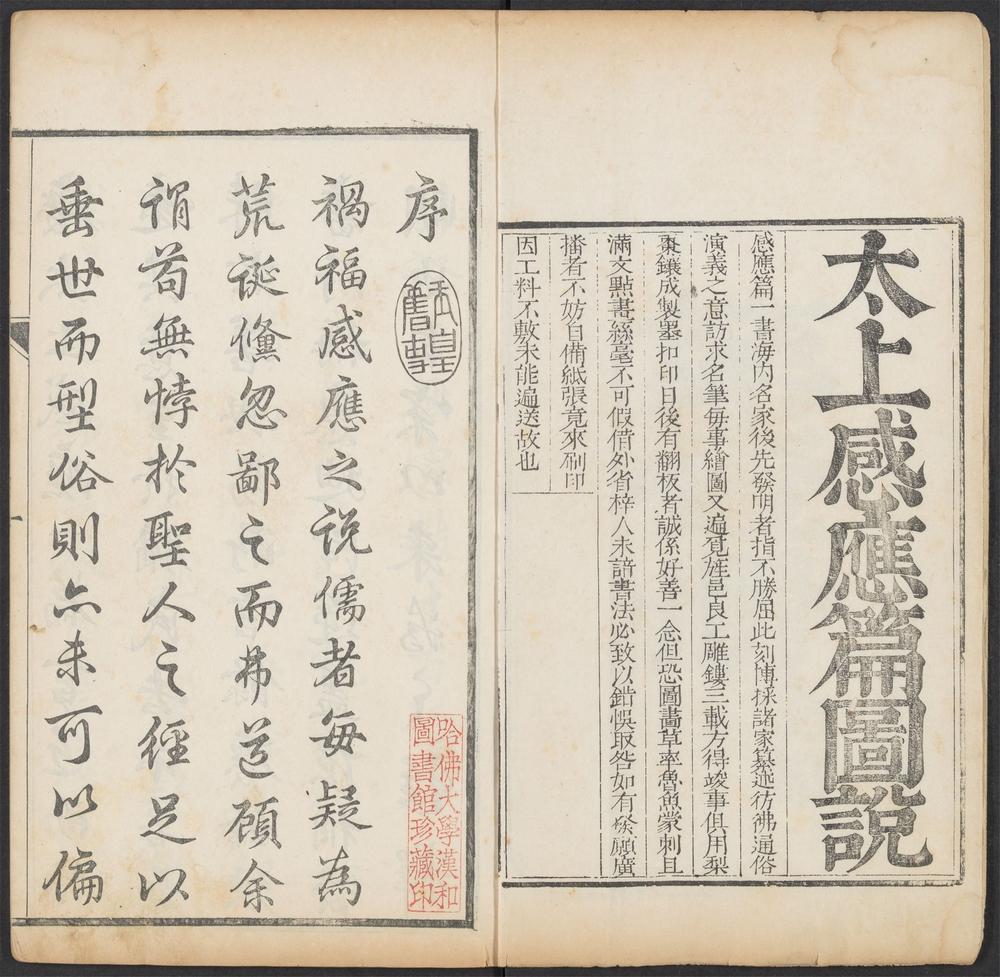 太上感應篇圖說
感應篇一書海内名家後先發明者指不勝屈此刻博採諸家纂述彷彿通俗
演義之意訪求名筆每事繪圖又遍覓旌邑良工雕鏤三載方得竣事俱用梨
棗鑲成製墨扣印日後有翻板者誠係好善一念但恐圖畫草率魯魚蒙刺且
滿文點畫絲毫不可假借外省梓人未諳書法必致以錯悞取咎如有發願廣
播者不妨自備紙張竟來刷印
因工料不敷未能遍送故也
序
禍福感應之説儒者每疑為
荒誕儵忽鄙之而弗道顧余
謂苟無悖於聖人之經足以
垂世而型俗則亦未可以偏
哈佛大學漢和
圖書館珍藏印